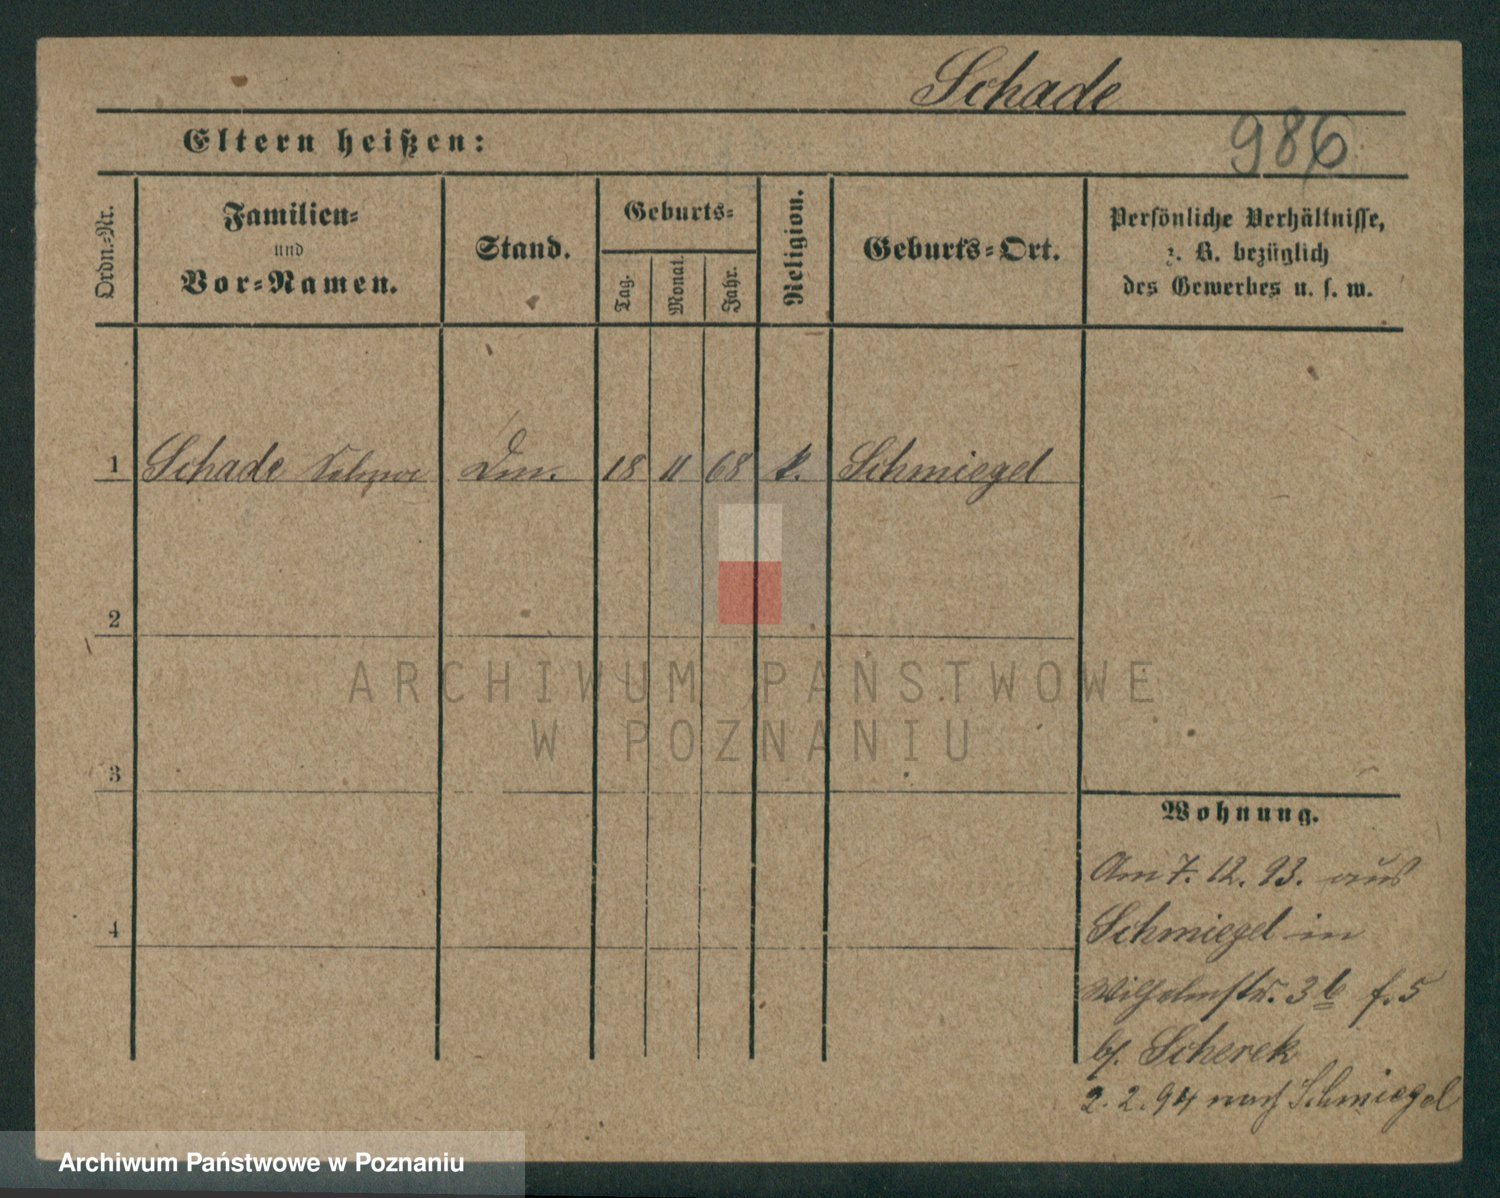 Schade
Eltern heißen:
986
Ordn.-Nr.
Familien-
und
Vor-Namen.
Stand.
Geburts-
Tag.
Monat.
Jahr.
Religion.
Geburts-Ort.
Persönliche Verhältnisse,
z. B. bezüglich
des Gewerbes u. s. w.
1 Schade 18 11 68 k. Schmiegel
2
3
4
ARCHIWUM PAŃSTWOWE
W POZNANIU
Wohnung.
Am 7. 12. 93. aus
Schmiegel in
Wilhelmstr. 3b f. 5
bf. Scherek
2. 2. 94 nach Schmiegel
Archiwum Państwowe w Poznaniu